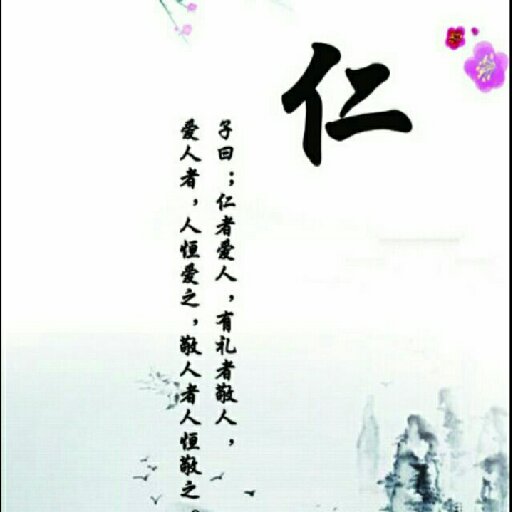 仁
子曰；仁者爱人，有礼者敬人，
爱人者，人恒爱之，敬人者人恒敬之。